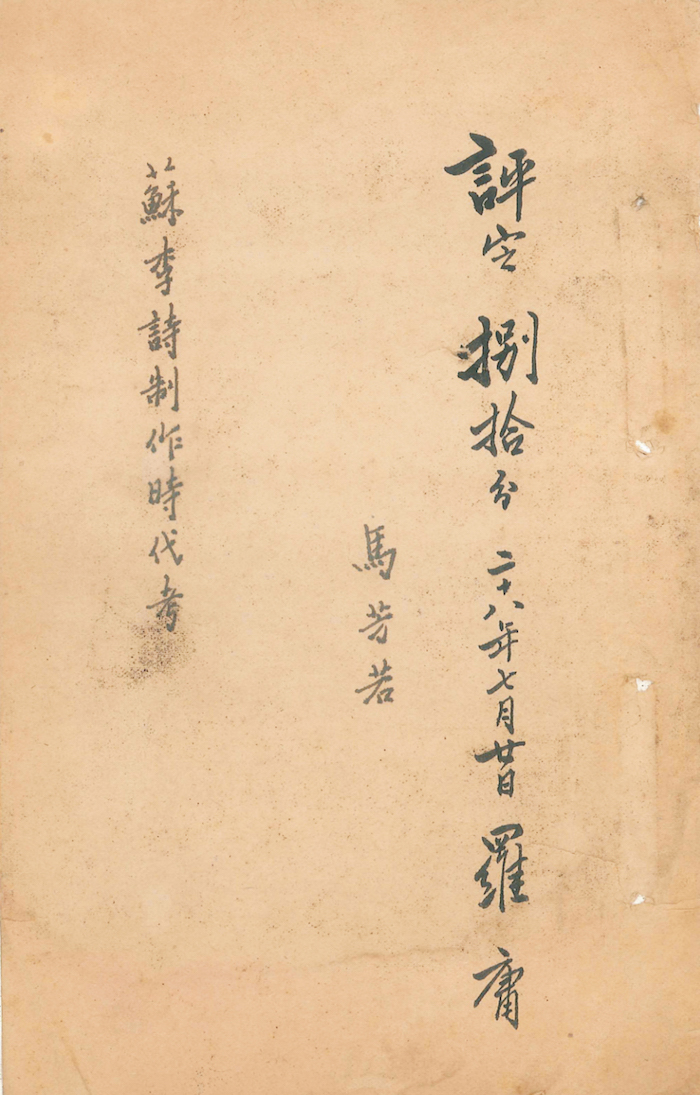 評定 捌拾分 二十八年七月廿日 羅庸
馬芳若
蘇李詩制作時代考